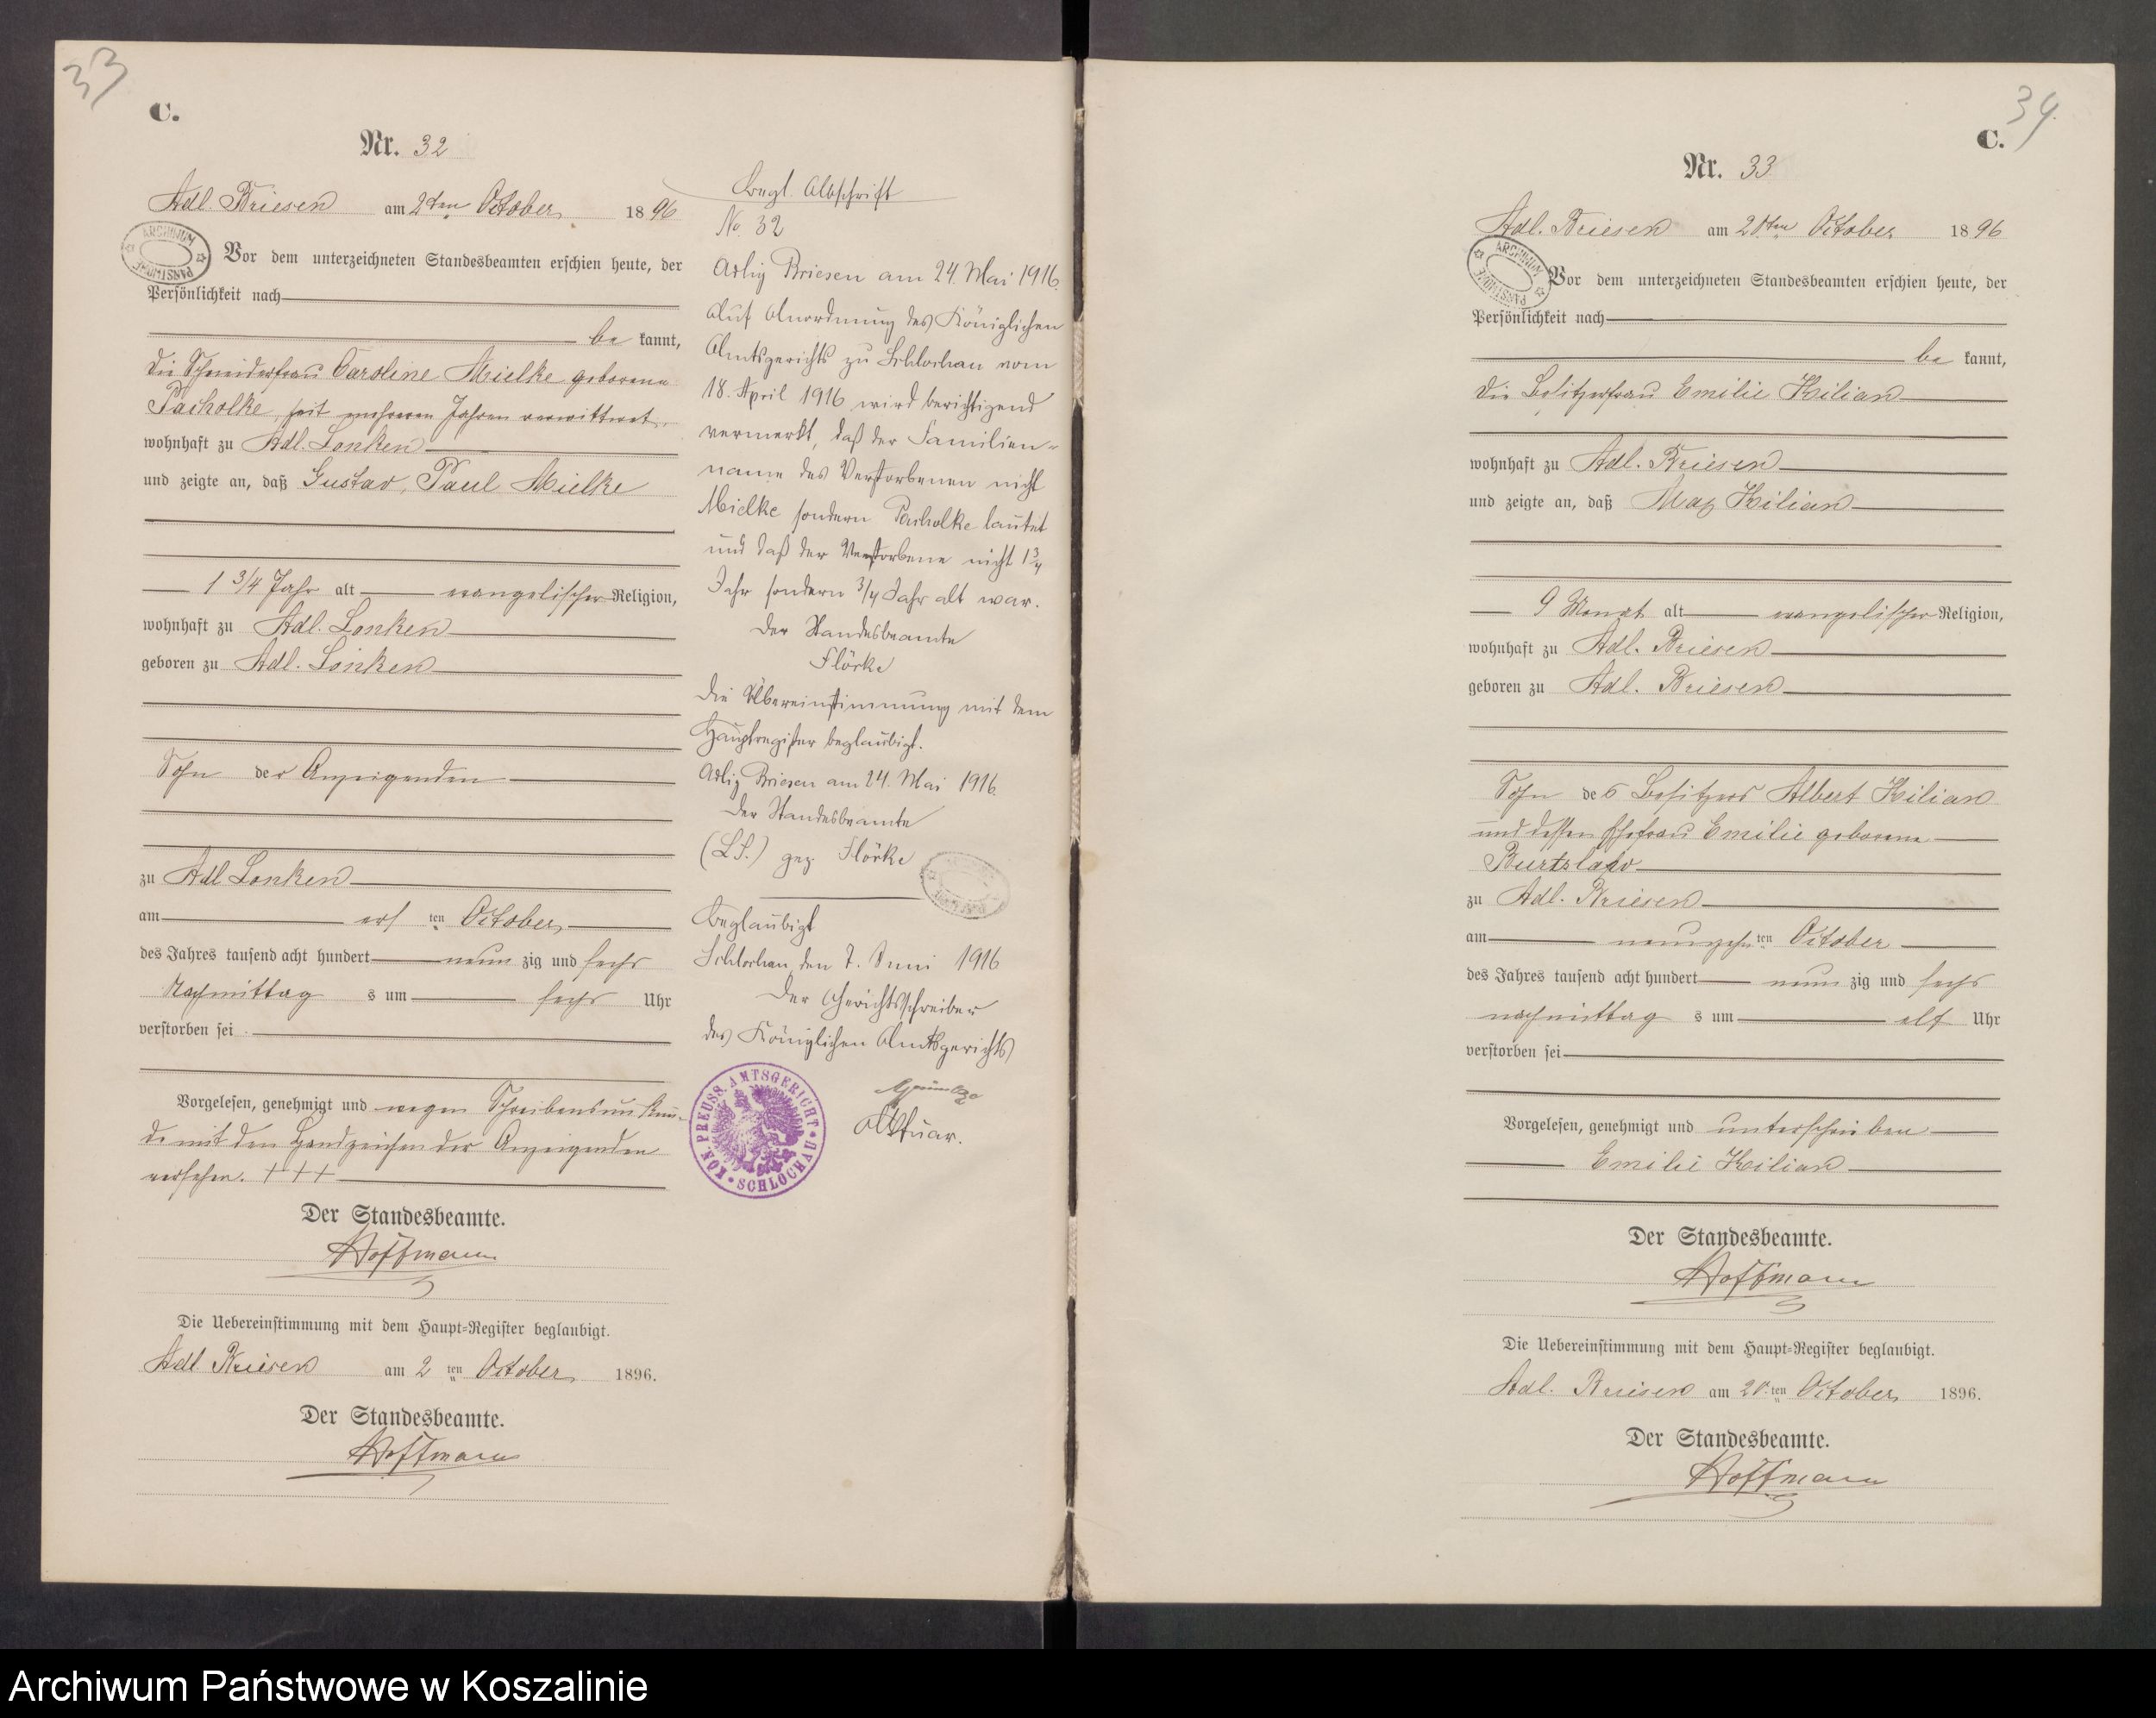 33
C.
Nr. 32
Adl. Briesen am 2ten October 1896
Vor dem unterzeichneten Standesbeamten erschien heute, der
Persönlichkeit nach
be kannt,
die Schneiderfrau Caroline Mielke geborene
Pacholke, seit mehreren Jahren verwittwet,
wohnhaft zu Adl. Lonken
und zeigte an, daß Gustav, Paul Mielke
1 3/4 Jahr alt evangelischer Religion,
wohnhaft zu Adl. Lonken
geboren zu Adl. Lonken
Sohn der Anzeigenden
zu Adl Lonken
am ersten October
des Jahres tausend acht hundert neun zig und sechs
Nachmittag s um sechs Uhr
verstorben sei
Vorgelesen, genehmigt und wegen Schreibensunkun-
de mit den Handzeichen der Anzeigenden
versehen. +++
Der Standesbeamte.
Hoffmann
Die Uebereinstimmung mit dem Haupt=Register beglaubigt.
Adl. Briesen am 2 ten October 1896.
Der Standesbeamte.
Hoffmann
Begl. Abschrift
No. 32
Adlig Briesen am 24. Mai 1916.
Auf Anordnung des Königlichen
Amtsgerichts zu Schlochau vom
18. April 1916 wird berichtigend
vermerkt, daß der Familien=
name des Verstorbenen nicht
Mielke sondern Pacholke lautet
und daß der Verstorbene nicht 1 3/4
Jahr sondern 3/4 Jahr alt war.
Der Standesbeamte
Flörke
Die Übereinstimmung mit dem
Hauptregister beglaubigt.
Adlig Briesen am 24. Mai 1916.
Der Standesbeamte
(L.S.) gez. Flörke
Beglaubigt
Schlochau, den 7. Juni 1916
Der Gerichtsschreiber
des Königlichen Amtsgerichts
Aktuar.
KÖN. PREUSS. AMTSGERICHT • ZU • SCHLOCHAU
ARCHIWUM PAŃSTWOWE
34.
C.
Nr. 33
Adl. Briesen am 20ten October 1896
Vor dem unterzeichneten Standesbeamten erschien heute, der
Persönlichkeit nach
be kannt,
die Besitzerfrau Emilie Kilian
wohnhaft zu Adl. Briesen
und zeigte an, daß Max Kilian
9 Monat alt evangelischer Religion,
wohnhaft zu Adl. Briesen
geboren zu Adl. Briesen
Sohn des Besitzers Albert Kilian
und dessen Ehefrau Emilie geborene
zu Adl. Briesen
am neunzehnten October
des Jahres tausend acht hundert neun zig und sechs
nachmittag s um elf Uhr
verstorben sei
Vorgelesen, genehmigt und unterschrieben
Emilie Kilian
Der Standesbeamte.
Hoffmann
Die Uebereinstimmung mit dem Haupt=Register beglaubigt.
Adl. Briesen am 20. ten October 1896.
Der Standesbeamte.
Hoffmann
ARCHIWUM PAŃSTWOWE
Archiwum Państwowe w Koszalinie